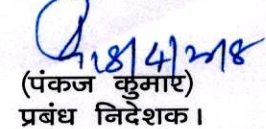 18/4/2018
(पंकज कुमार)
प्रबंध निदेशक।